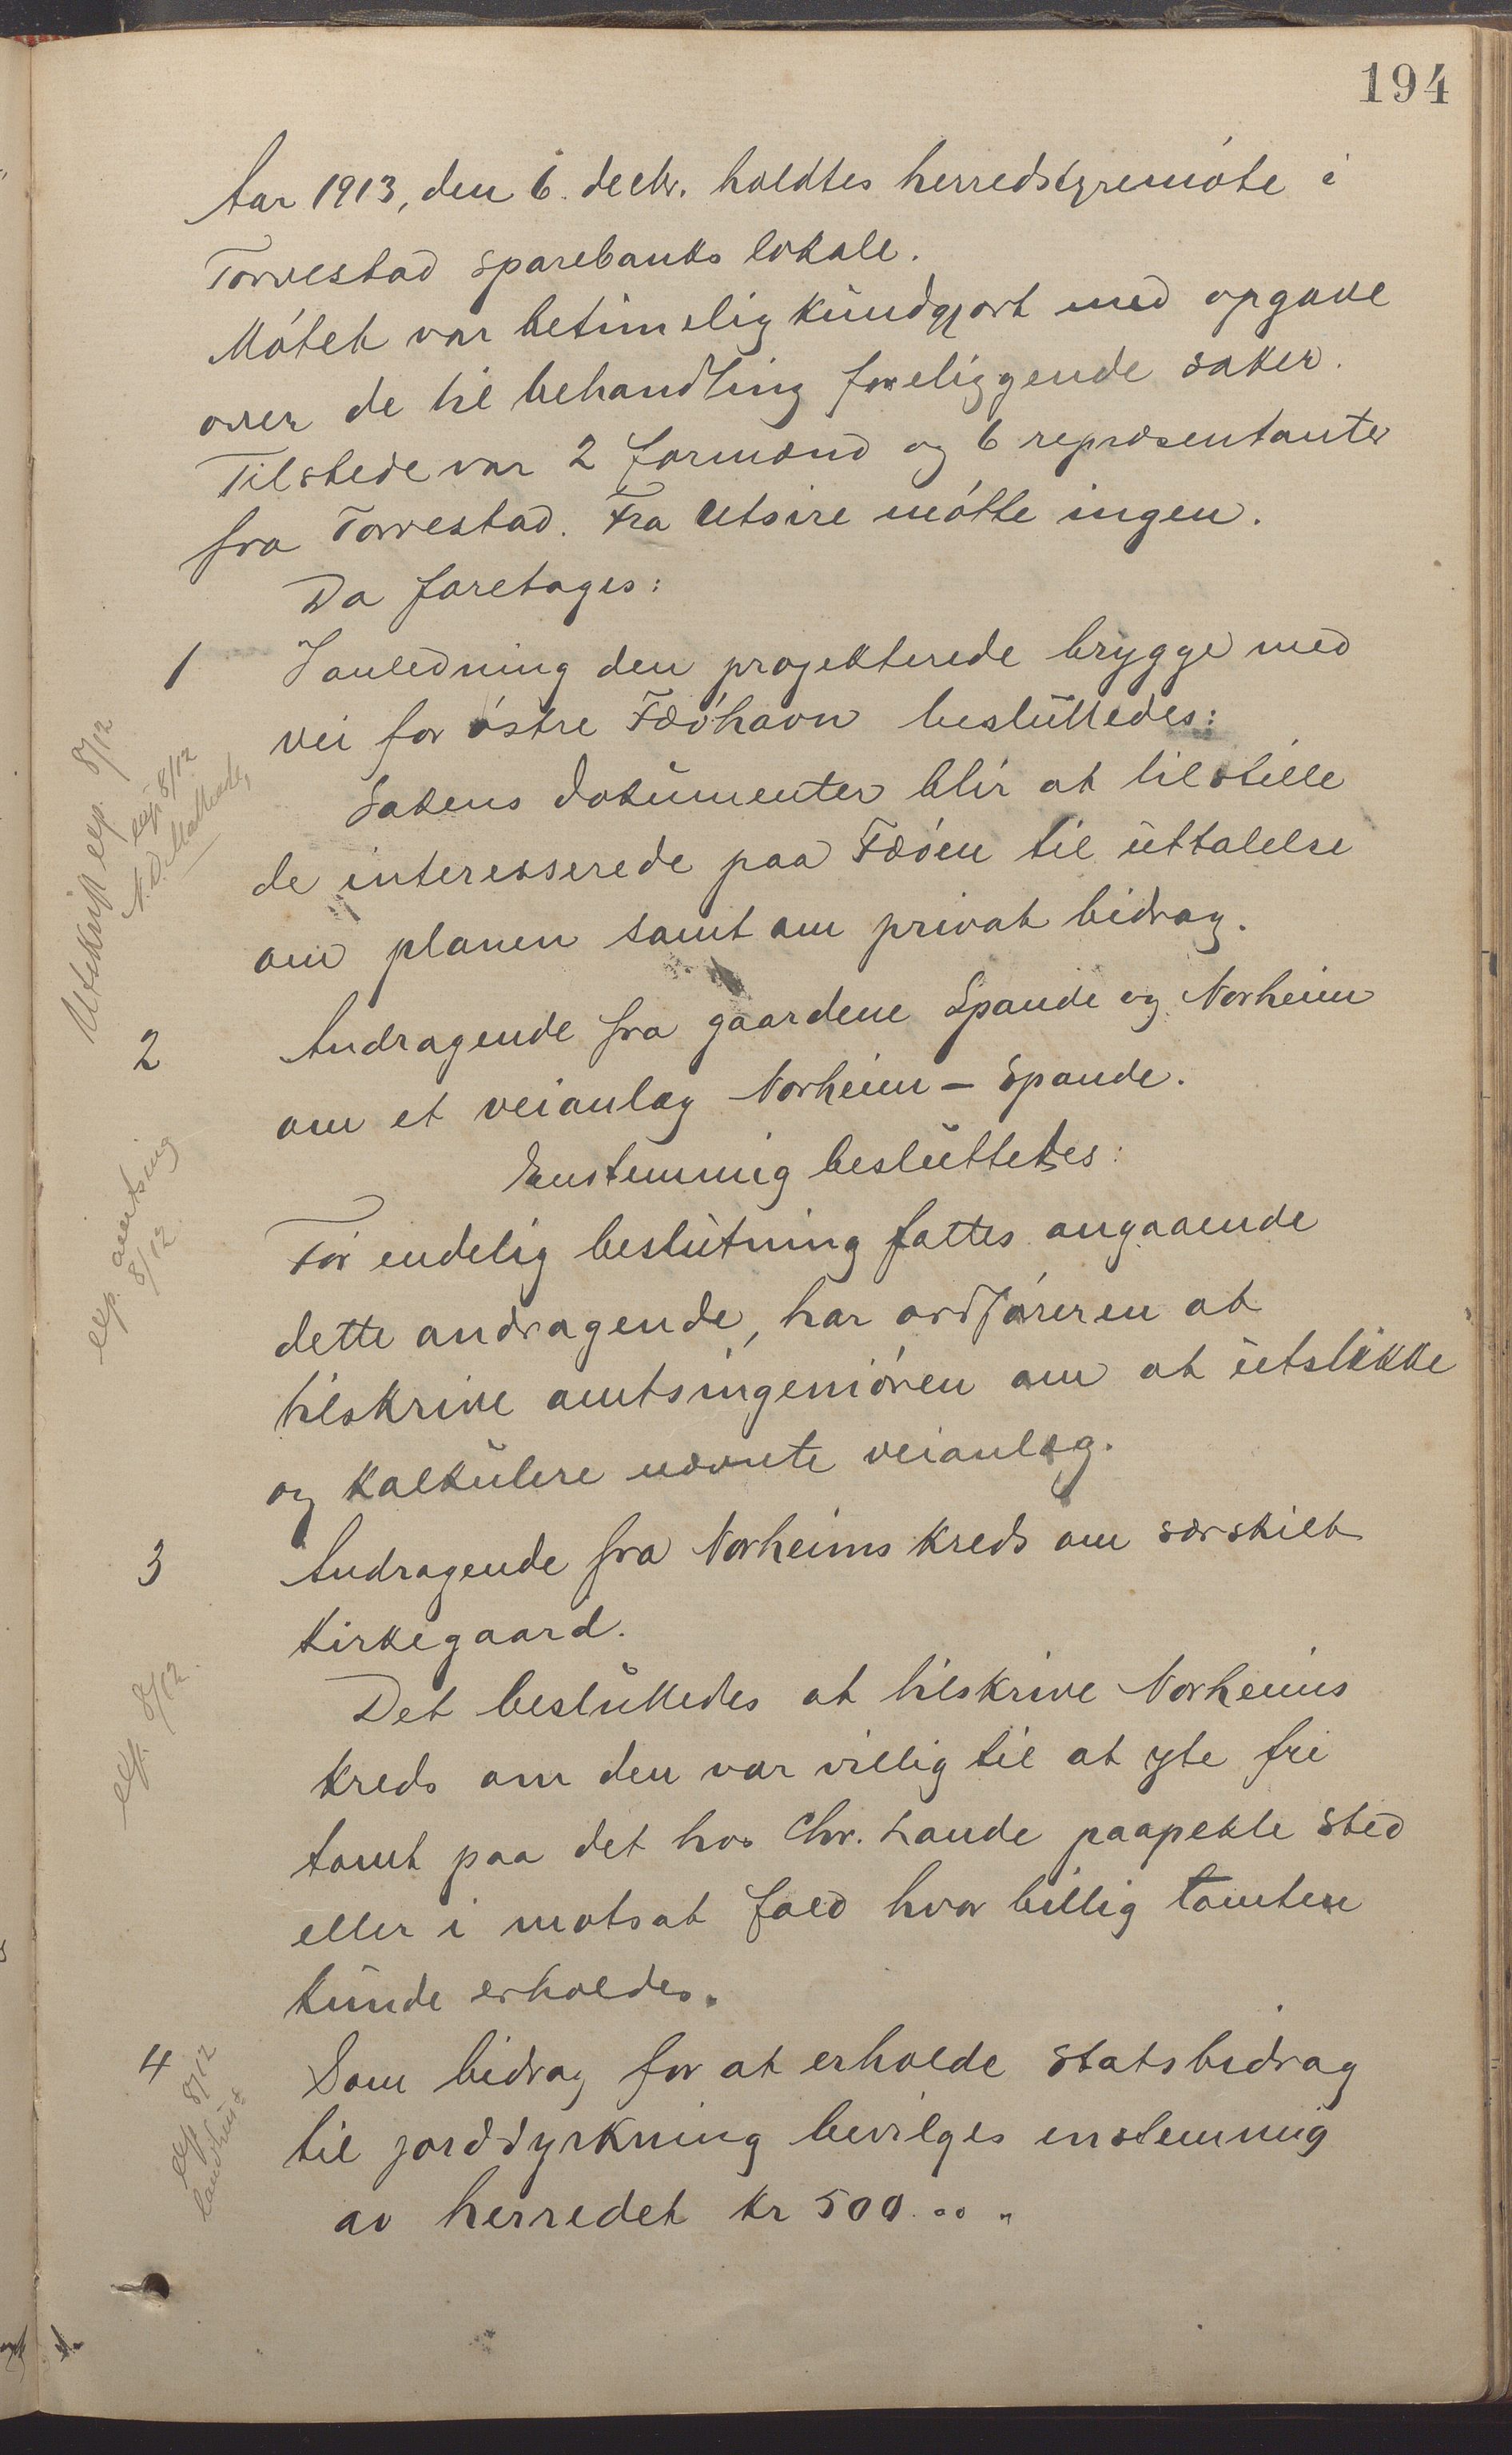 194
Aar 1913, den 6. decbr. holdtes herredstyremøte i
Torvestad sparebanks lokale.
Møtet var betimelig kundgjort med opgave
over de til behandling foreliggende saker.
Tilstede var 2 formænd og 6 repræsentanter
fra Torvestad. Fra Utsire møtte ingen.
Da foretages:
1 I anledning den projekterede brygge med
vei for østre Fæøhavn besluttedes:
Utskrift exp. 8/12
exp 8/12
Sakens dokumenter blir at tilstille
de interesserede paa Fæøen til uttalelse
om planen samt om privat bidrag.
2 Andragende fra gaardene Spande og Norheim
om et veianlæg Norheim – Spande.
Enstemmig besluttedes:
exp. amtsing
8/12
Før endelig beslutning fattes angaaende
dette andragende, har ordføreren at
tilskrive amtsingeniøren om at utstikke
og kalkulere nævnte veianlæg.
3 Andragende fra Norheims kreds om særskilt
kirkegaard.
exp. 8/12.
Det besluttedes at tilskrive Norheims
kreds om den var villig til at yte fri
tomt paa det hos Chr. Lande paapekte sted
eller i motsat fald hvor billig tomten
kunde erholdes.
4 Som bidrag for at erholde statsbidrag
exp 8/12
til jorddyrkning bevilges enstemmig
av herredet kr 500.00.